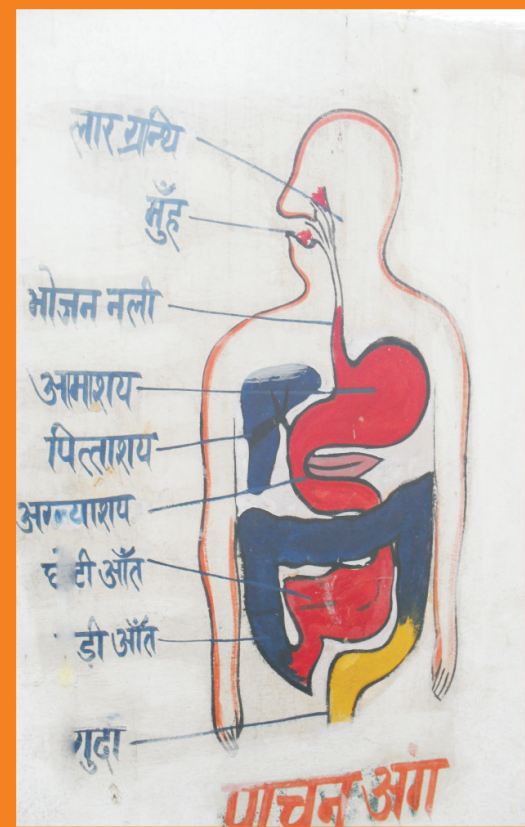 लार ग्रन्थि
मुँह
भोजन नली
आमाशय
पित्ताशय
अग्न्याशय
छोटी आँत
ड़ी आँत
गुदा
पाचन अंग